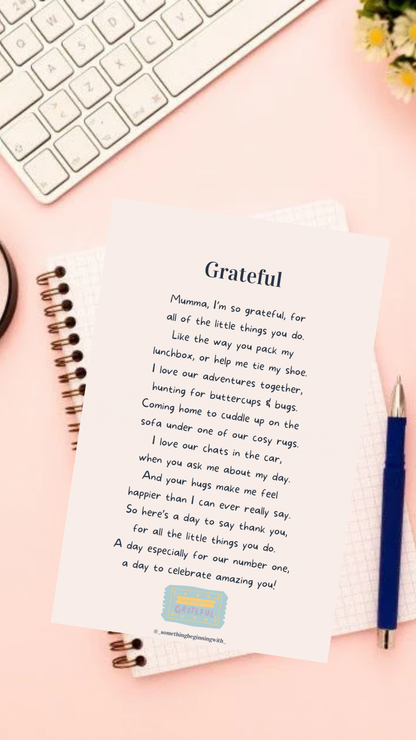 Grateful
Mumma, I'm so grateful, for
all of the little things you do.
Like the way you pack my
lunchbox, or help me tie my shoe.
I love our adventures together,
hunting for buttercups & bugs.
Coming home to cuddle up on the
sofa under one of our cosy rugs.
I love our chats in the car,
when you ask me about my day.
And your hugs make me feel
happier than I can ever really say.
So here's a day to say thank you,
for all the little things you do.
A day especially for our number one,
a day to celebrate amazing you!
GRATEFUL
@_somethingbeginningwith_